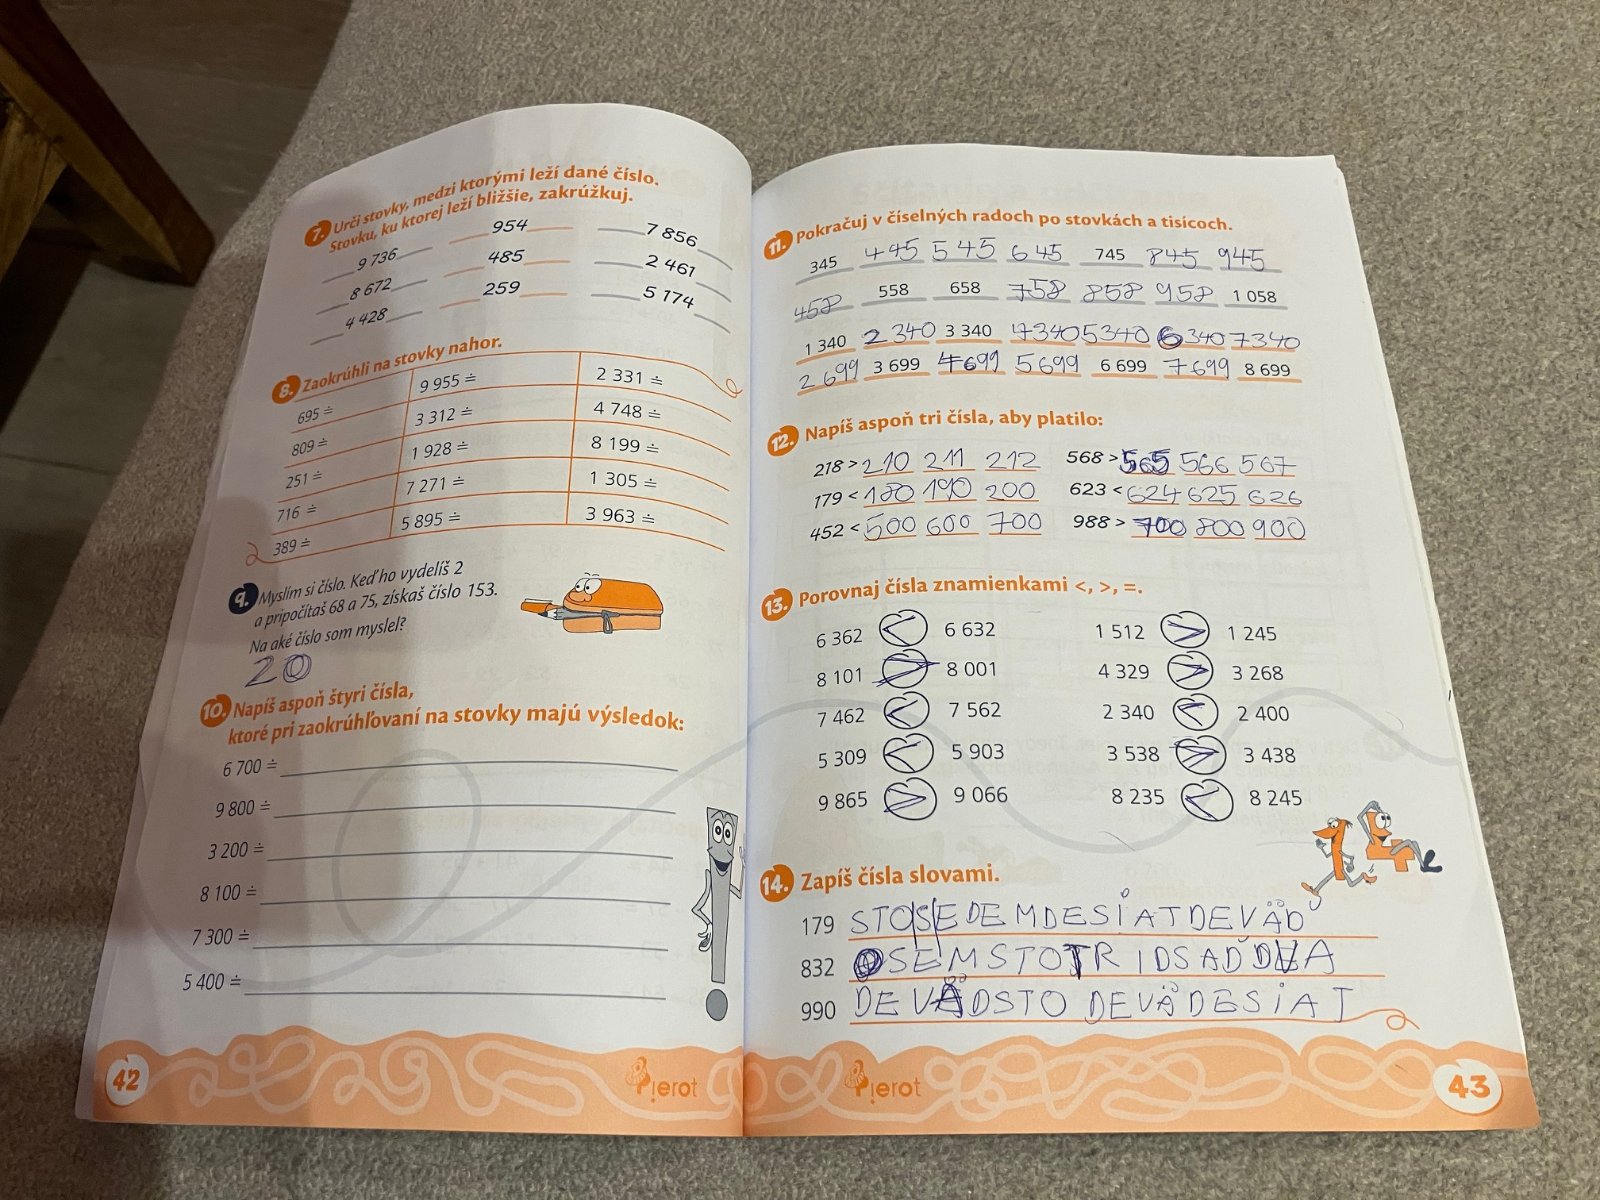 7. Urči stovky, medzi ktorými leží dané číslo.
Stovku, ku ktorej leží bližšie, zakrúžkuj.
9 736 954 7 856
8 672 485 2 461
4 428 259 5 174
8. Zaokrúhli na stovky nahor.
695 ≐ 9 955 ≐ 2 331 ≐
809 ≐ 3 312 ≐ 4 748 ≐
251 ≐ 1 928 ≐ 8 199 ≐
716 ≐ 7 271 ≐ 1 305 ≐
389 ≐ 5 895 ≐ 3 963 ≐
9. Myslím si číslo. Keď ho vydelíš 2
a pripočítaš 68 a 75, získaš číslo 153.
Na aké číslo som myslel?
20
10. Napíš aspoň štyri čísla,
ktoré pri zaokrúhľovaní na stovky majú výsledok:
6 700 ≐
9 800 ≐
3 200 ≐
8 100 ≐
7 300 ≐
5 400 ≐
42
Pierot
11. Pokračuj v číselných radoch po stovkách a tisícoch.
345 445 545 645 745 845 945
458 558 658 758 858 958 1 058
1 340 2 340 3 340 4340 5340 6340 7340
2 699 3 699 4699 5699 6 699 7699 8 699
12. Napíš aspoň tri čísla, aby platilo:
218 > 210 211 212 568 > 565 566 567
179 < 180 190 200 623 < 624 625 626
452 < 500 600 700 988 > 700 800 900
13. Porovnaj čísla znamienkami <, >, =.
6 362 < 6 632 1 512 > 1 245
8 101 > 8 001 4 329 > 3 268
7 462 < 7 562 2 340 < 2 400
5 309 < 5 903 3 538 > 3 438
9 865 > 9 066 8 235 < 8 245
14. Zapíš čísla slovami.
179 STOSEDEMDESIATDEVÄD
832 OSEMSTOTRIDSAĎDVA
990 DEVÄDSTO DEVÄDESIAT
Pierot
43